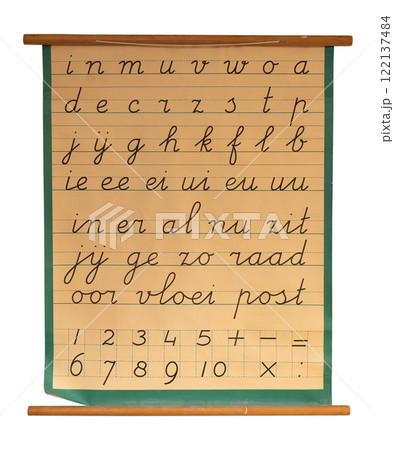 i n m u v w o a
d e c r z s t p
j ij g h k f l b
ie ee ei ui eu uu
in er al nu zit
jij ge zo raad
oor vloei post
1 2 3 4 5 + − =
6 7 8 9 10 × :
PIXTA
pixta.jp - 122137484